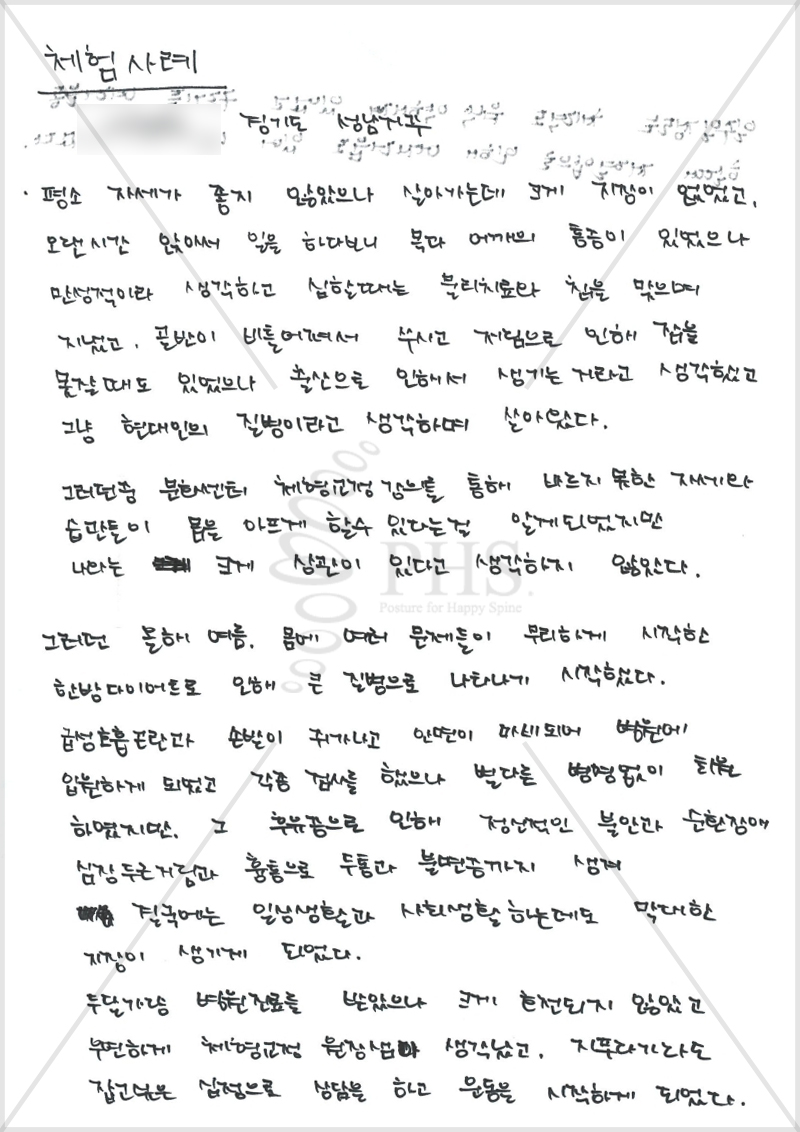 체험사례
경기도 성남거주
· 평소 자세가 좋지 않았으나 살아가는데 크게 지장이 없었고,
오랜시간 앉아서 일을 하다보니 목과 어깨의 통증이 있었으나
만성적이라 생각하고 심할때는 물리치료와 침을 맞으며
지냈고, 골반이 비틀어져서 쑤시고 저림으로 인해 잠을
못잘때도 있었으나 출산으로 인해서 생기는거라고 생각했고
그냥 현대인의 질병이라고 생각하며 살아왔다.
그러던중 문화센터 체형교정 강의를 통해 바르지 못한 자세와
습관들이 몸을 아프게 할수 있다는걸 알게되었지만
나와는 크게 상관이 있다고 생각하지 않았다.
그러던 올해 여름, 몸에 여러 문제들이 무리하게 시작한
한방다이어트로 인해 큰 질병으로 나타나기 시작했다.
급성호흡곤란과 손발이 쥐가나고 안면이 마비되어 병원에
입원하게 되었고 각종 검사를 했으나 별다른 병명없이 퇴원
하였지만, 그 후유증으로 인해 정신적인 불안과 순환장애
심장두근거림과 흉통으로 두통과 불면증까지 생겨
결국에는 일상생활과 사회생활하는데도 막대한
지장이 생기게 되었다.
두달가량 병원진료를 받았으나 크게 호전되지 않았고
우연하게 체형교정 원장샘이 생각났고, 지푸라기라도
잡고싶은 심정으로 상담을 하고 운동을 시작하게 되었다.
PHS.
Posture for Happy Spine